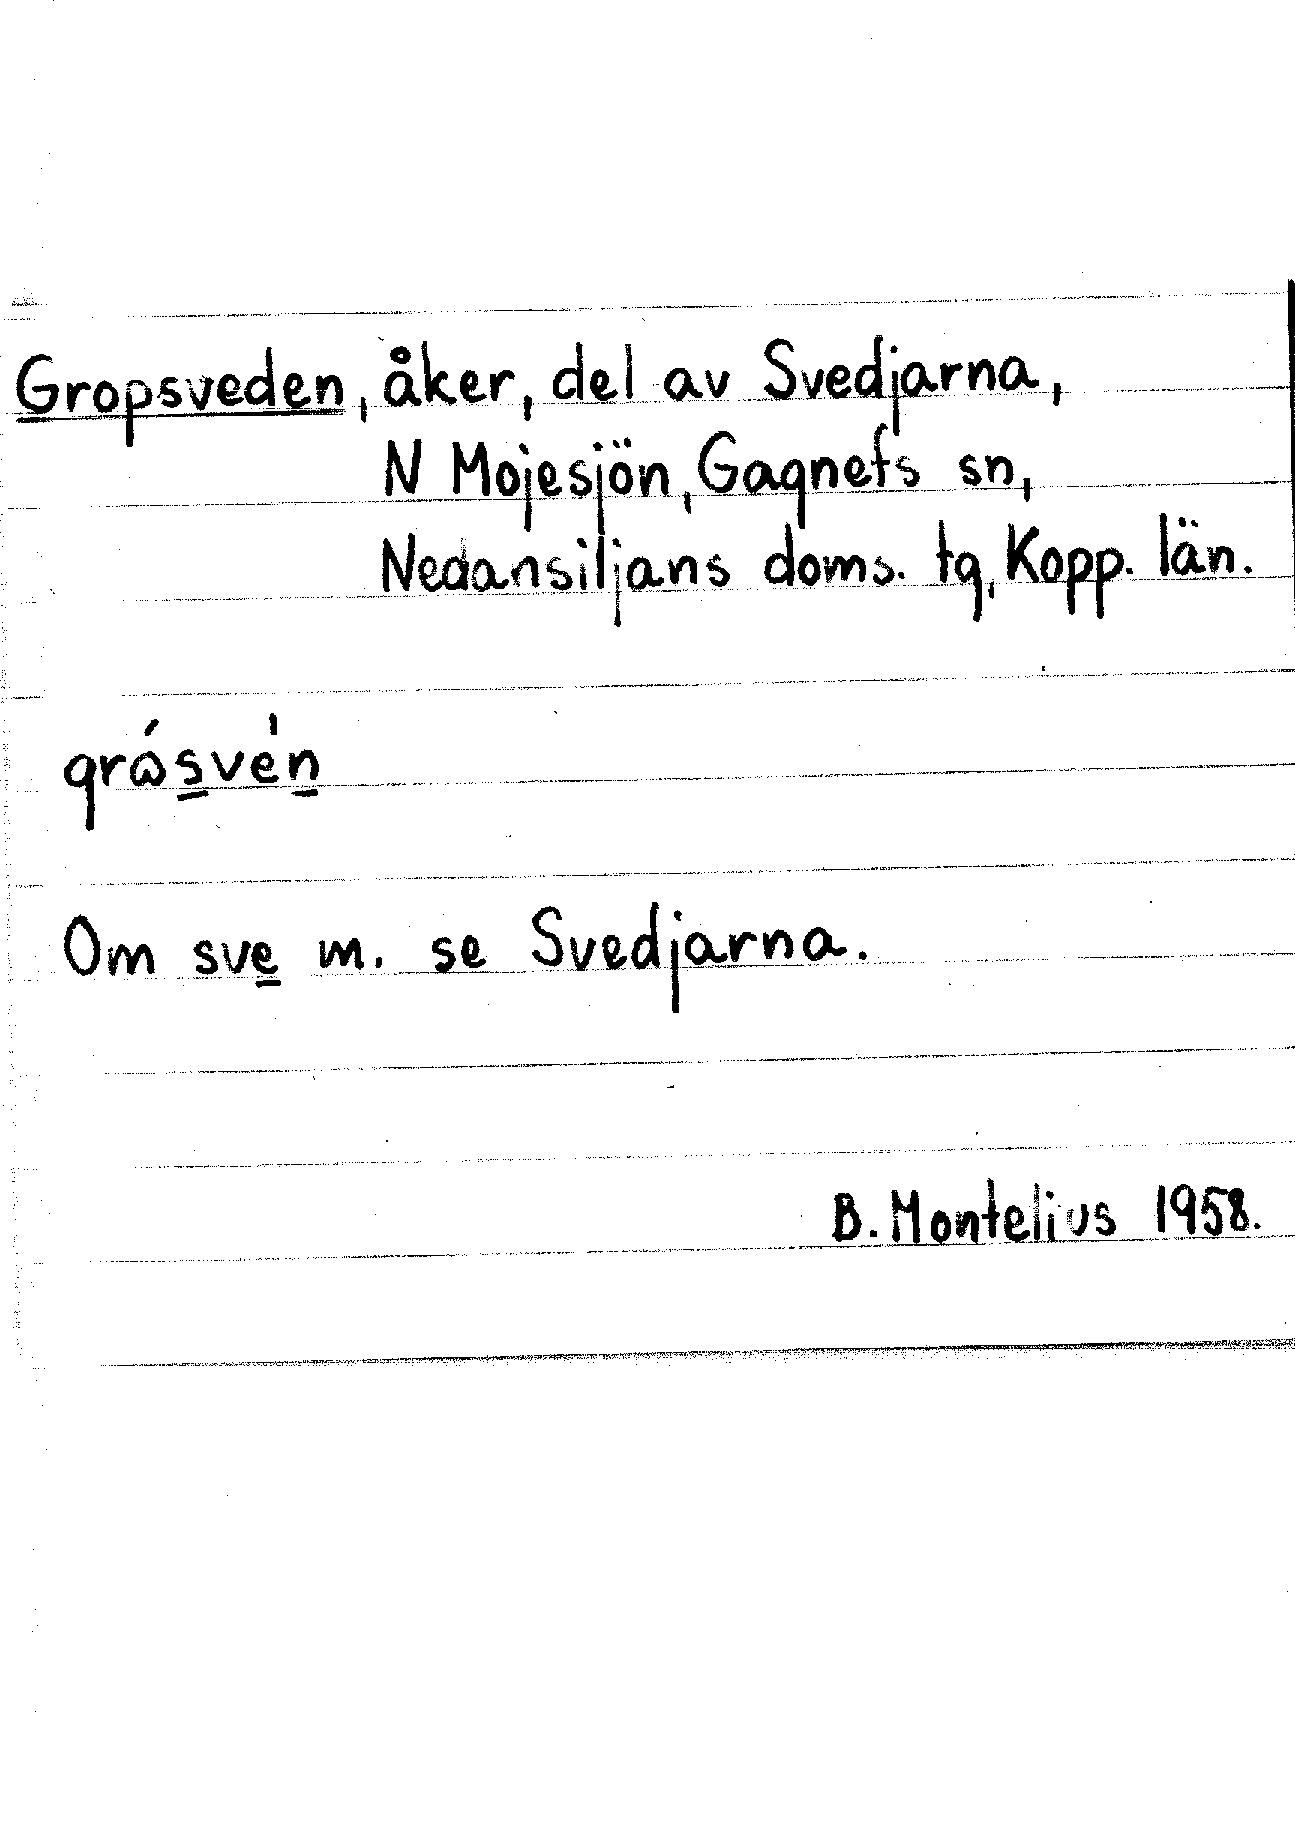 Gropsveden, åker, del av Svedjarna,
N Mojesjön, Gagnefs sn,
Nedansiljans doms. tg, Kopp. län.
grɷ́svén
Om sve m. se Svedjarna.
B. Montelius 1958.